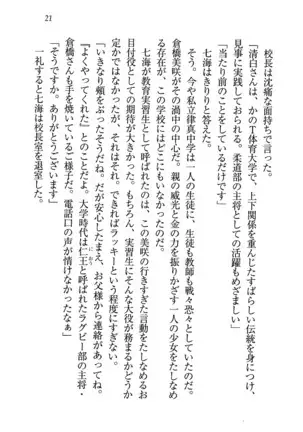 21
校長は沈痛な面持ちで言った。
「清白さんは、あのT体育大学で、上下関係を重んじたすばらしい伝統を身につけ、
見事に実践しておられる。柔道部の主将としての活躍もめざましい」
「当たり前のことをしているだけです」
七海はきりりと答えた。
倉橋美咲がその渦の中心だ。
そうだ、今や私立律真中学は一人の生徒に、生徒も教師も戦々恐々としていた。
親の威光と金の力を振りかざす一人の少女をたしなめ
る存在が、この学校にはどこにもいなかったのだ。
七海が教育実習生として呼ばれたのは、この美咲の行きすぎた言動をたしなめるお
目付役としての期待が大きかった。もちろん、実習生にそんな大役が務まるかどうか
定かではなかったが、それはそれ。できればラッキーという程度にすぎない。
「いきなり頰をぶったそうだね。だが安心したまえ、お父様から連絡があってね。
『よくやってくれた』とのことだよ。大学時代は仁王と呼ばれたラグビー部の主将・
倉橋さんも手を焼いているご様子だ。電話口の声が情けなかったなぁ」
「そうですか。ありがとうございます」
一礼すると七海は校長室を退室した。